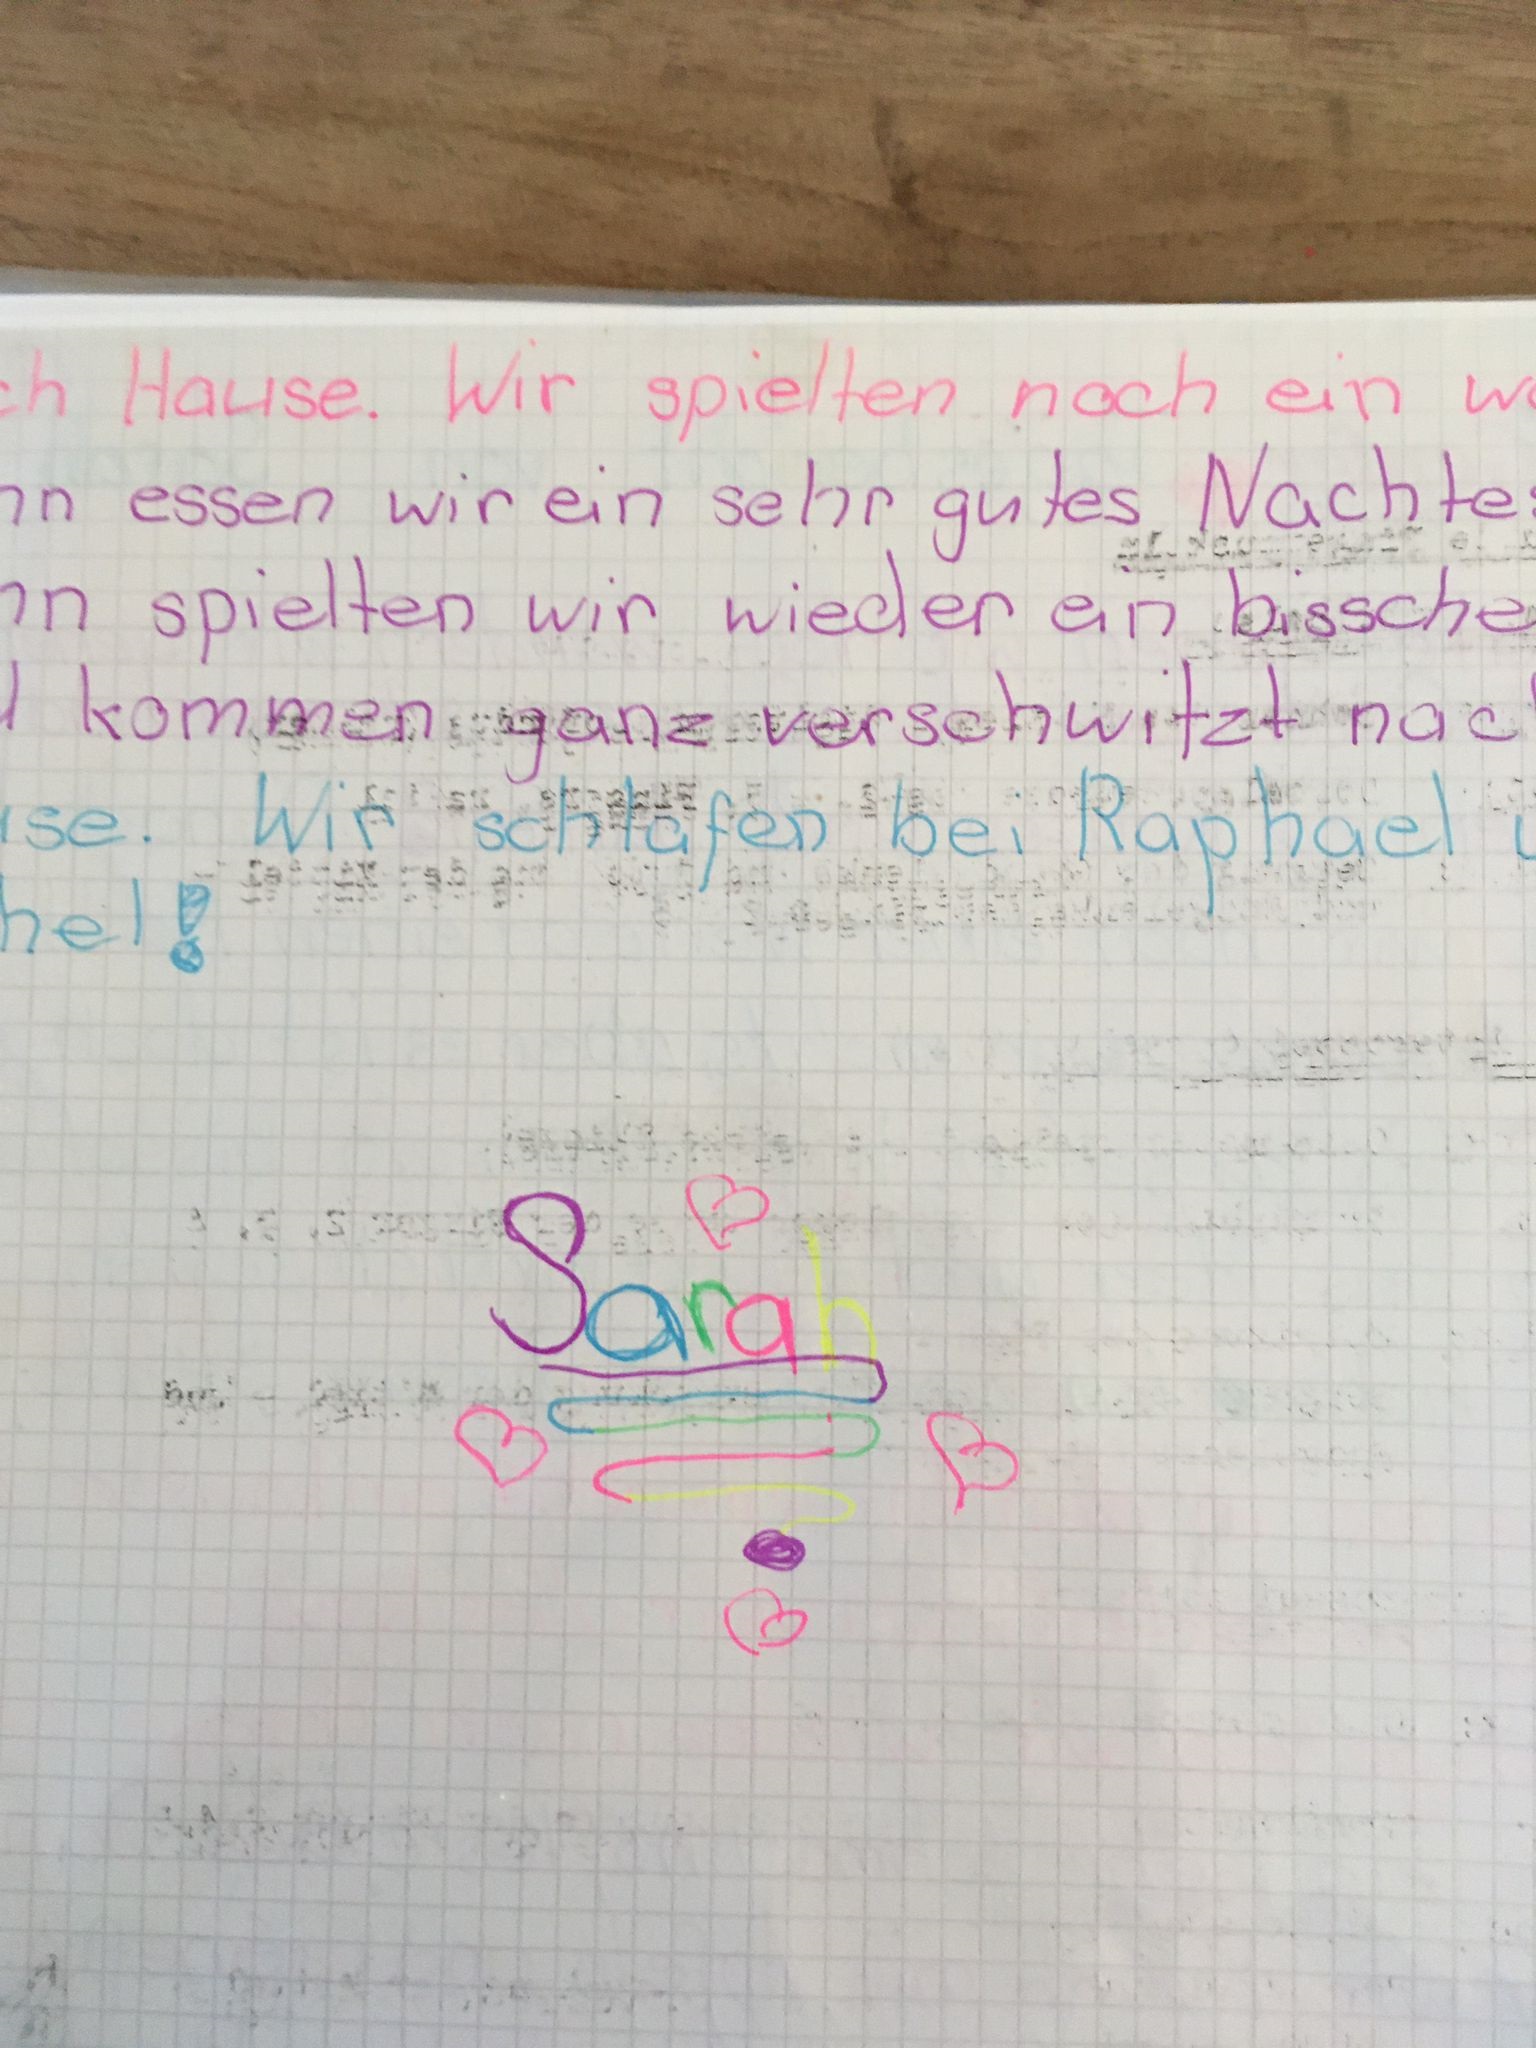 ch Hause. Wir spielten noch ein we
nn essen wir ein sehr gutes Nachtes
nn spielten wir wieder ein bissche
d kommen ganz verschwitzt nach
use. Wir schlafen bei Raphael u
hel!
Sarah